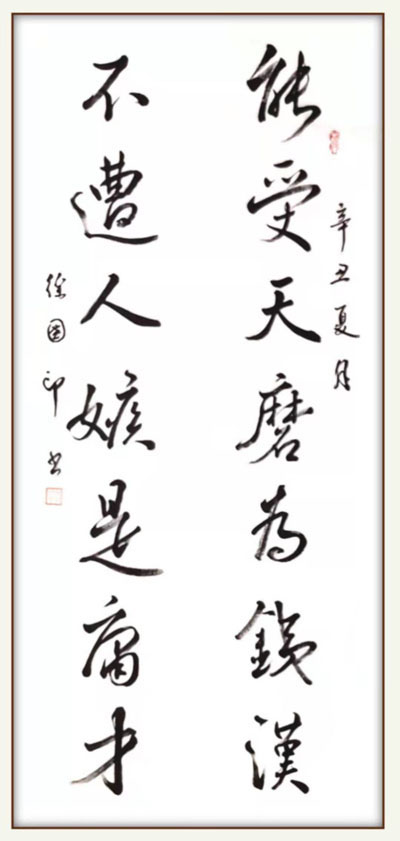 辛丑夏月
能受天磨為銕漢
不遭人嫉是庸才
徐國印书